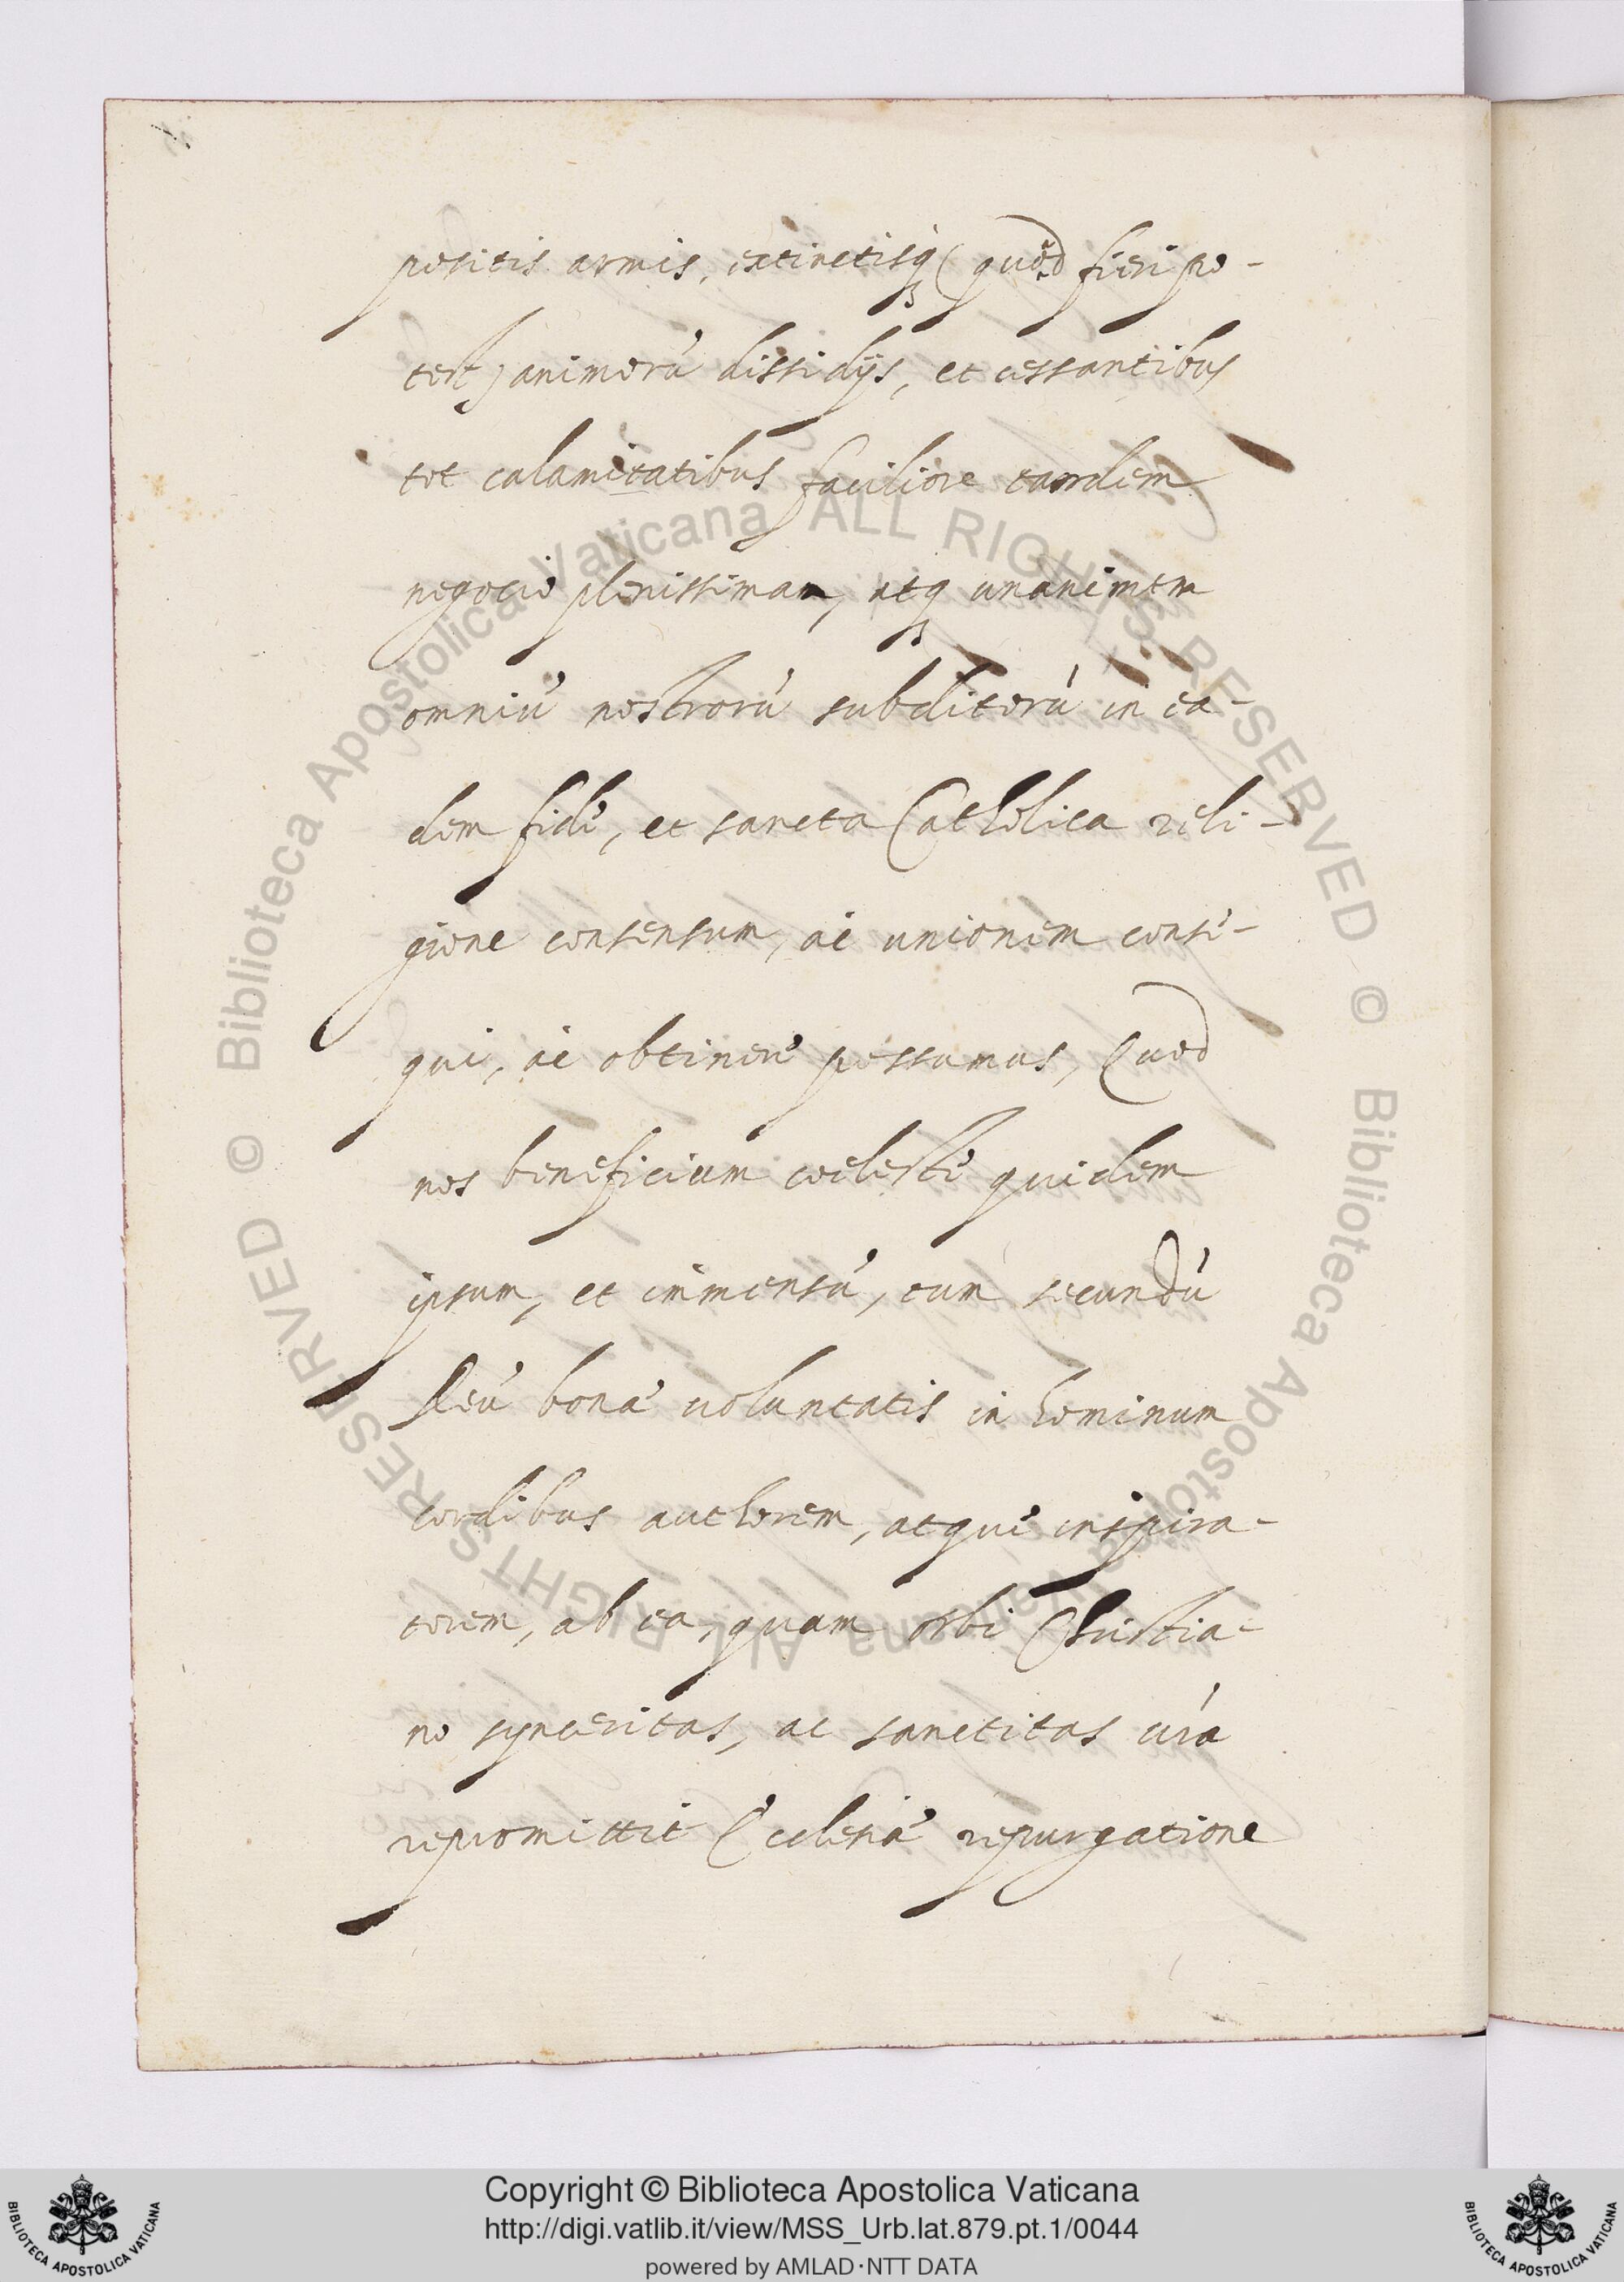 positis armis, extinctisq₃ (quod fieri po-
test) animorú dissidijs, et cessantibus
tot calamitatibus faciliore tandem
negocio plenissimam, atq₃ unanimem
omniú nostrorú subditorú in ea-
dem fide, et sancta Catholica reli-
gione consensum, ac unionem conse-
qui, ac obtinere possumus, Quod
nos beneficium coeleste quidem
ipsum, et immensú, tum secundú
Deú bonae voluntatis in hominum
cordibus authorem, atque inspira-
torem, ab ea, quam orbi Christia-
no synceritas, ac sanctitas vrá
repromittit Ecclesiae repurgatione
© Biblioteca Apostolica Vaticana ALL RIGHTS RESERVED
© Biblioteca Apostolica Vaticana ALL RIGHTS RESERVED
Copyright © Biblioteca Apostolica Vaticana
http://digi.vatlib.it/view/MSS_Urb.lat.879.pt.1/0044
powered by AMLAD·NTT DATA
BIBLIOTECA APOSTOLICA VATICANA
BIBLIOTECA APOSTOLICA VATICANA